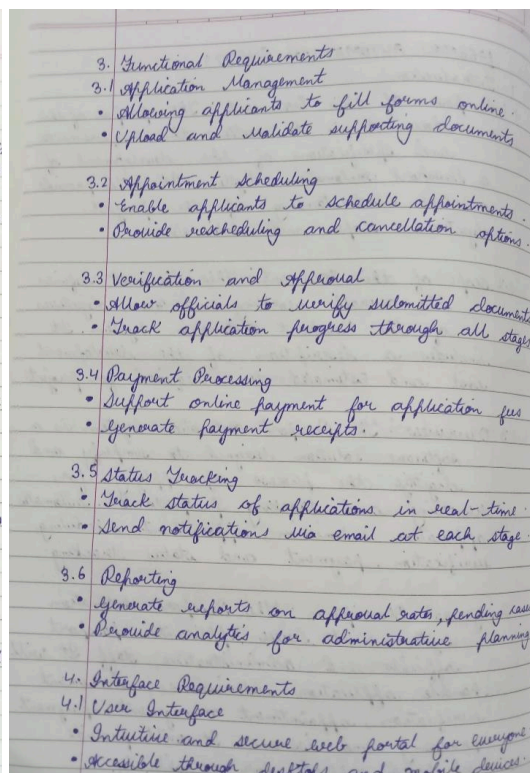 3. Functional Requirements
3.1 Application Management
• Allowing applicants to fill forms online.
• Upload and Validate supporting documents
3.2 Appointment Scheduling
• Enable applicants to schedule appointments.
• Provide rescheduling and cancellation options.
3.3 Verification and Approval
• Allow officials to verify submitted documents
• Track application progress through all stages
3.4 Payment Processing
• Support online payment for application fees
• Generate payment receipts.
3.5 Status Tracking
• Track status of applications in real-time.
• Send notifications via email at each stage
3.6 Reporting
• Generate reports on approval rates, pending cases
• Provide analytics for administrative planning
4. Interface Requirements
4.1 User Interface
• Intuitive and secure web portal for everyone
• Accessible through desktops and mobile devices